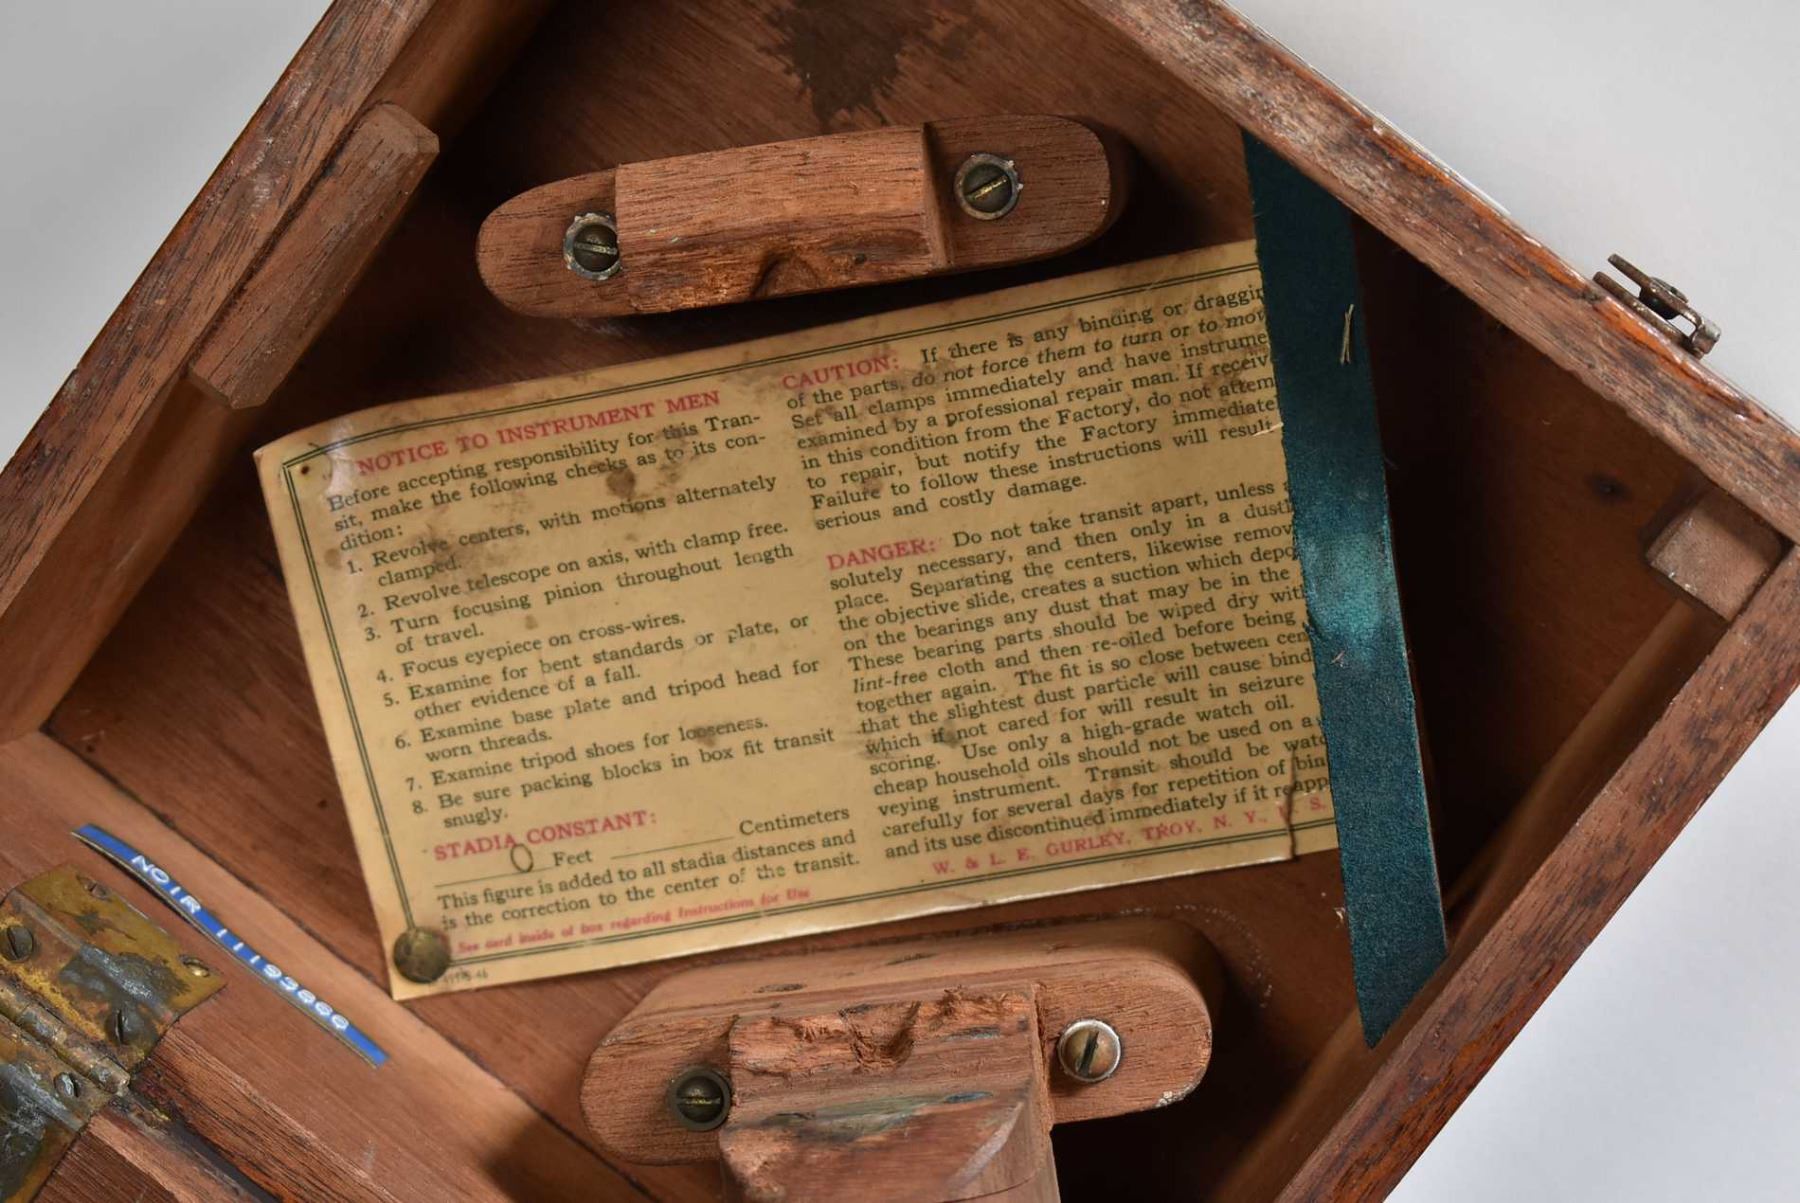 NOTICE TO INSTRUMENT MEN
Before accepting responsibility for this Tran-
sit, make the following checks as to its con-
dition:
1. Revolve centers, with motions alternately
clamped.
2. Revolve telescope on axis, with clamp free.
3. Turn focusing pinion throughout length
of travel.
4. Focus eyepiece on cross-wires.
5. Examine for bent standards or plate, or
other evidence of a fall.
6. Examine base plate and tripod head for
worn threads.
7. Examine tripod shoes for looseness.
8. Be sure packing blocks in box fit transit
snugly.
STADIA CONSTANT:
0 Feet Centimeters
This figure is added to all stadia distances and
is the correction to the center of the transit.
See card inside of box regarding Instructions for Use
CAUTION: If there is any binding or draggin
of the parts, do not force them to turn or to mov
Set all clamps immediately and have instrume
examined by a professional repair man. If receiv
in this condition from the Factory, do not attem
to repair, but notify the Factory immediate
Failure to follow these instructions will result
serious and costly damage.
DANGER: Do not take transit apart, unless a
solutely necessary, and then only in a dustl
place. Separating the centers, likewise remov
the objective slide, creates a suction which depo
on the bearings any dust that may be in the
These bearing parts should be wiped dry wit
lint-free cloth and then re-oiled before being
together again. The fit is so close between cen
that the slightest dust particle will cause bind
which if not cared for will result in seizure
scoring. Use only a high-grade watch oil.
cheap household oils should not be used on a
veying instrument. Transit should be watc
carefully for several days for repetition of bin
and its use discontinued immediately if it reapp
W. & L. E. GURLEY, TROY, N. Y., U. S.
NOIR